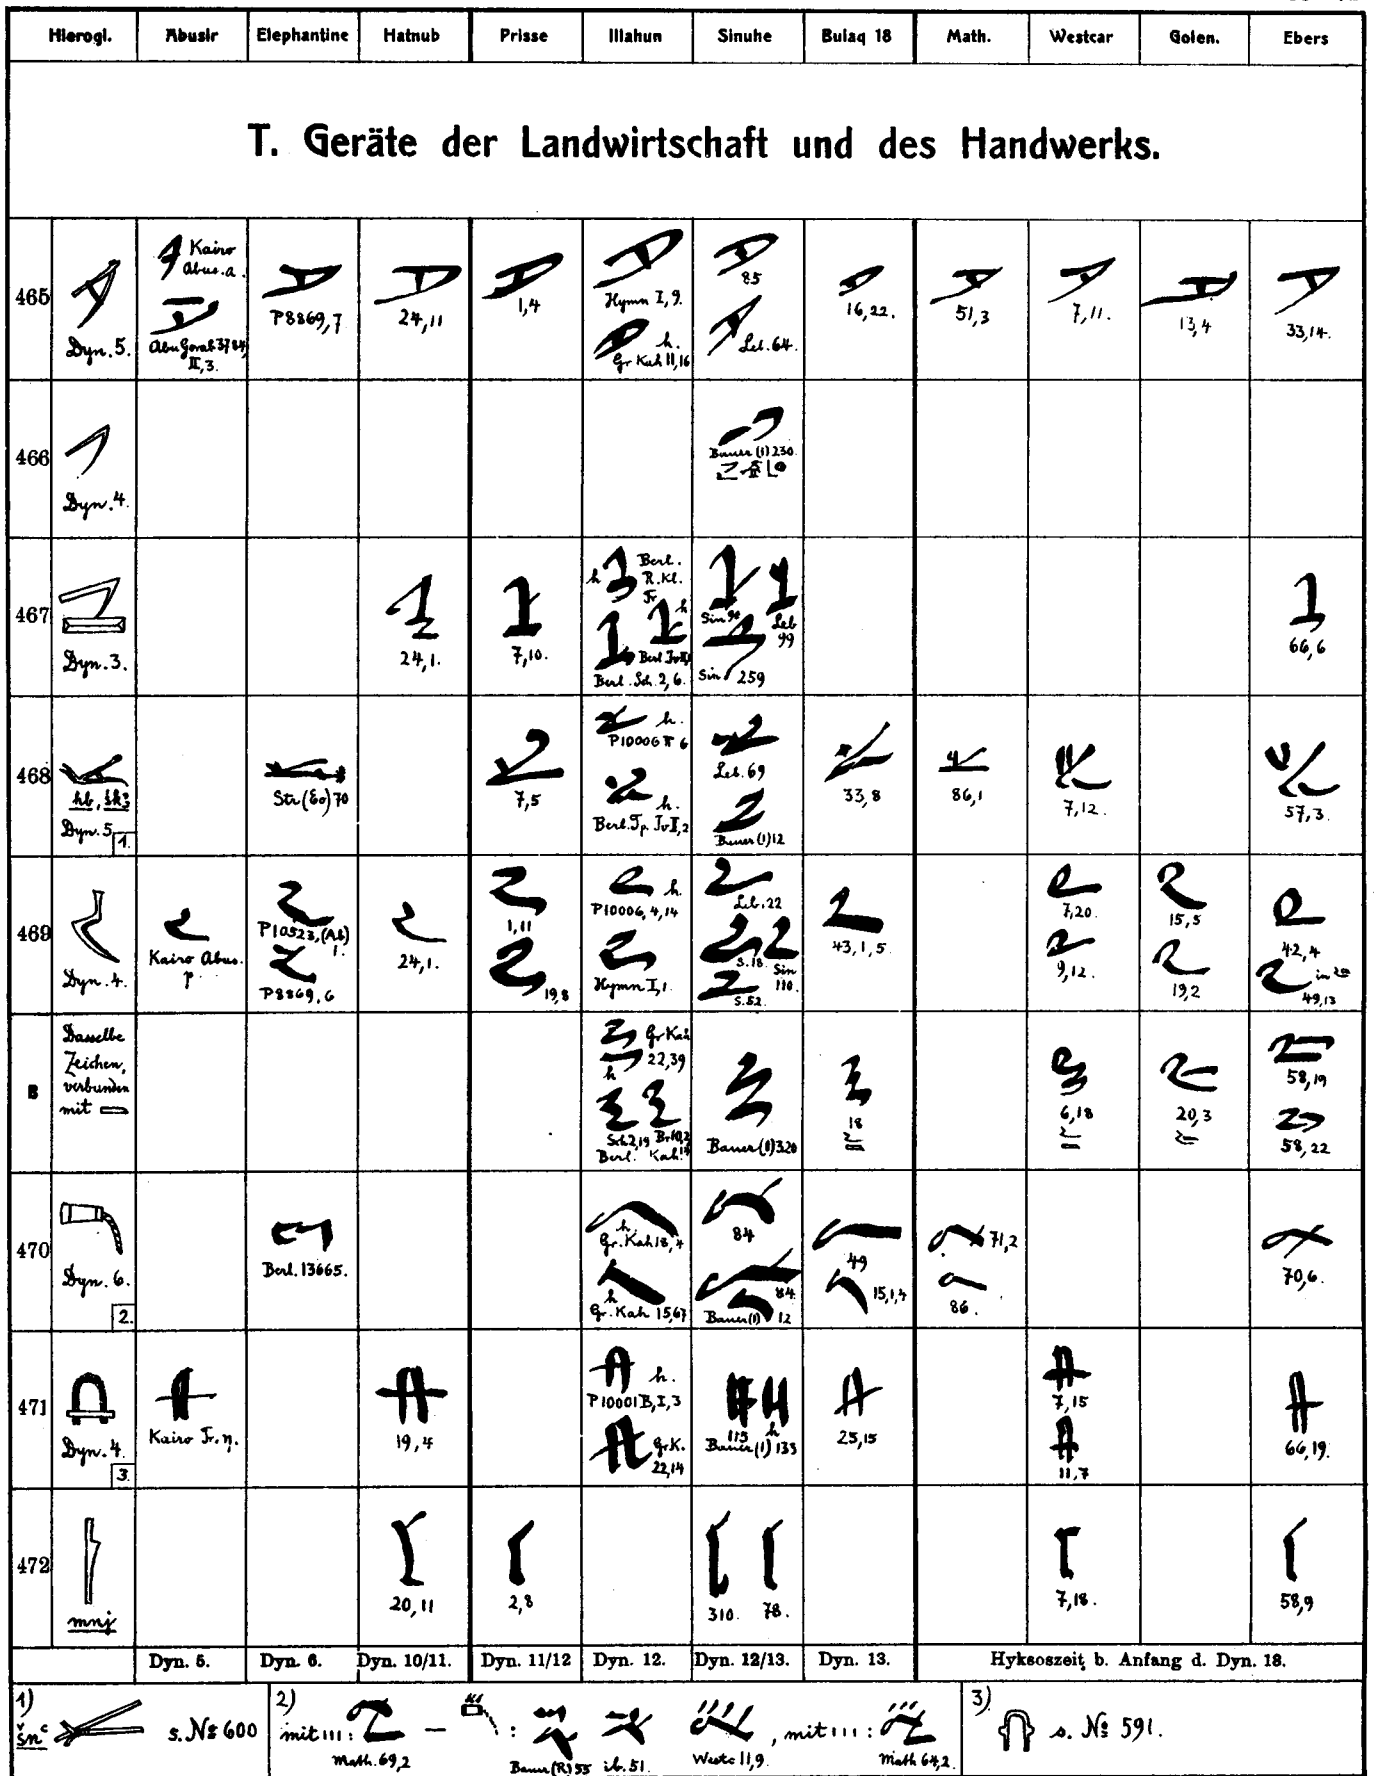 Hierogl. Abusir Elephantine Hatnub Prisse Illahun Sinuhe Bulaq 18 Math. Westcar Golen. Ebers
T. Geräte der Landwirtschaft und des Handwerks.
465 Dyn. 5.
Kairo Abus. a.
II, 3.
P8869, 7
24, 11
1, 4
Hymn I, 9.
h.
Gr Kah 11, 16
85
Leb. 64.
16, 22.
51, 3
7, 11.
13, 4
33, 14.
466 Dyn. 4.
Bauer (1) 230.
467 Dyn. 3.
24, 1.
7, 10.
h Berl. R. Kl. Fr
h
Berl. Sch. 2, 6.
Leb 99
Sin 259
66, 6
468
Dyn. 5.
1.
Str (Eo) 70
7, 5
h.
P10006 π 6
h.
Leb. 69
Bauer (1) 12
33, 8
86, 1
7, 12.
57, 3.
469 Dyn. 4.
Kairo Abus. p.
P10523, (Ab) 1.
P8869, 6
24, 1.
1, 11
19, 8
h.
P10006, 4, 14
Hymn I, 1.
Leb. 22
S. 18.
Sin 110.
S. 52.
43, 1, 5
7, 20.
9, 12.
15, 5
19, 2
42, 4
49, 13
B Dasselbe
Zeichen,
verbunden
mit
Gr Kah
22, 39
h
Berl.
Bauer (1) 320
18
6, 18
20, 3
58, 19
58, 22
470 Dyn. 6.
2.
Berl. 13665.
h
Gr. Kah 18, 4
h
Gr. Kah 15, 67
84
84
Bauer (1) 12
49
15, 1, 4
71, 2
86.
70, 6.
471 Dyn. 4.
3.
Kairo Fr. η.
19, 4
h.
P10001 B, I, 3
Gr. K.
22, 14
115 h
Bauer (1) 133
25, 15
7, 15
11, 7
66, 19.
472 mnj
20, 11
2, 8
310. 78.
7, 18.
58, 9
Dyn. 5. Dyn. 6. Dyn. 10/11. Dyn. 11/12 Dyn. 12. Dyn. 12/13. Dyn. 13. Hyksoszeit b. Anfang d. Dyn. 18.
1) šnꜥ s. № 600
2) mit ııı : Math. 69, 2 — : Bauer (R) 55 ib. 51. Westc 11, 9. , mit ııı : Math 64, 2.
3) s. № 591.